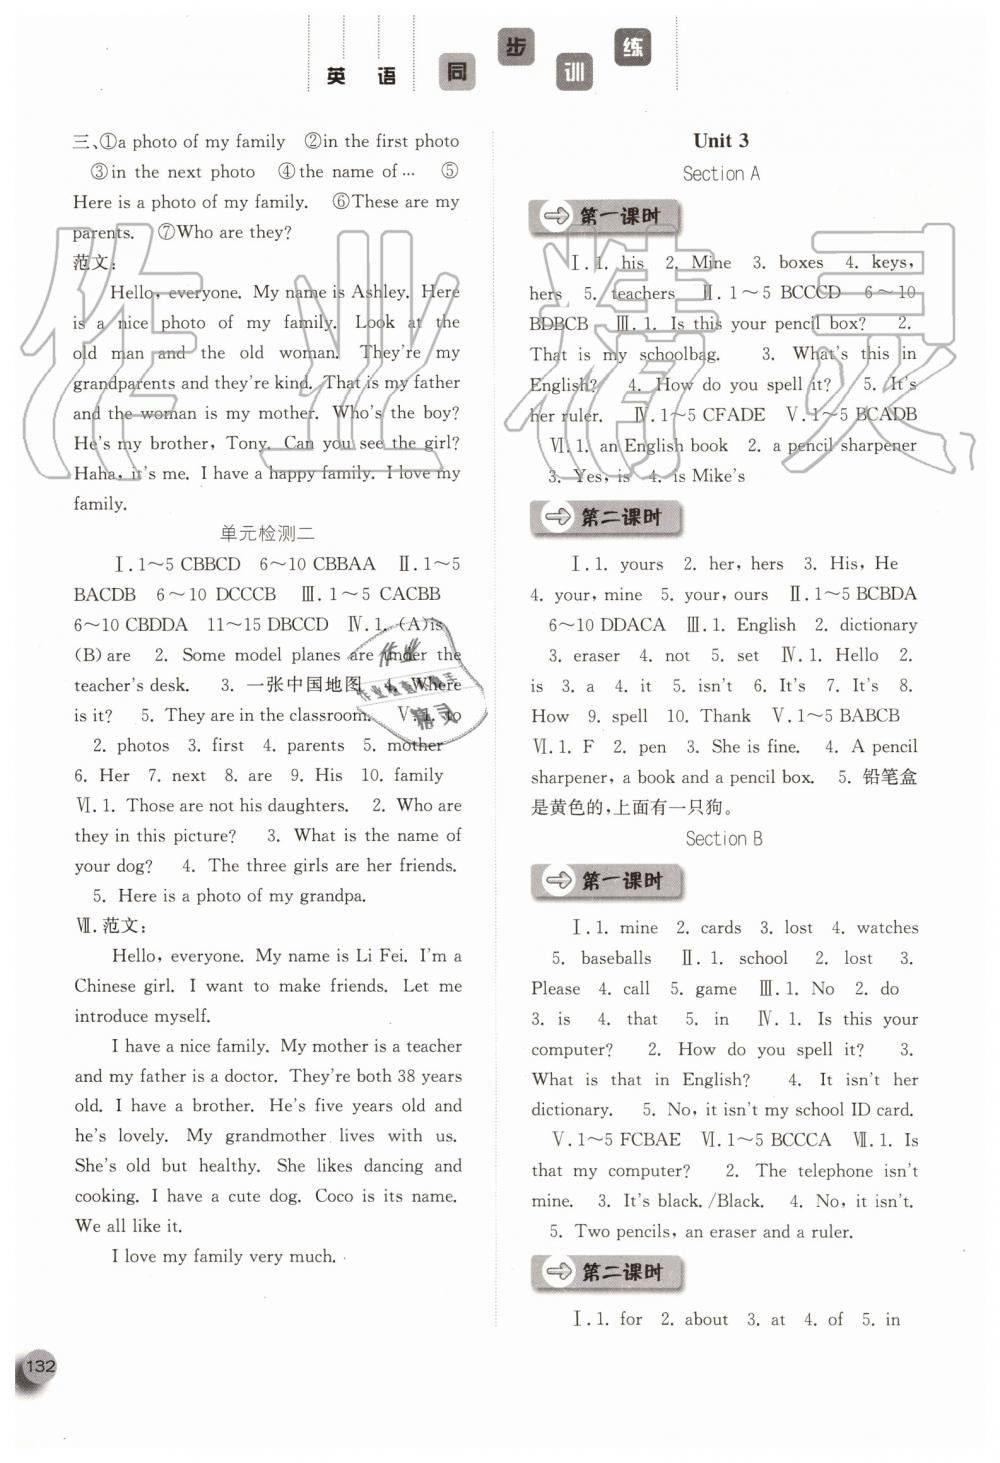 英 语 同 步 训 练
三、①a photo of my family ②in the first photo
③in the next photo ④the name of… ⑤
Here is a photo of my family. ⑥These are my
parents. ⑦Who are they?
范文：
Hello, everyone. My name is Ashley. Here
is a nice photo of my family. Look at the
old man and the old woman. They're my
grandparents and they're kind. That is my father
and the woman is my mother. Who's the boy?
He's my brother, Tony. Can you see the girl?
Haha, it's me. I have a happy family. I love my
family.
单元检测二
Ⅰ. 1～5 CBBCD 6～10 CBBAA Ⅱ. 1～5
BACDB 6～10 DCCCB Ⅲ. 1～5 CACBB
6～10 CBDDA 11～15 DBCCD Ⅳ. 1. (A)is
(B)are 2. Some model planes are under the
teacher's desk. 3. 一张中国地图 4. Where
is it? 5. They are in the classroom. Ⅴ. 1. to
2. photos 3. first 4. parents 5. mother
6. Her 7. next 8. are 9. His 10. family
Ⅵ. 1. Those are not his daughters. 2. Who are
they in this picture? 3. What is the name of
your dog? 4. The three girls are her friends.
5. Here is a photo of my grandpa.
Ⅶ. 范文：
Hello, everyone. My name is Li Fei. I'm a
Chinese girl. I want to make friends. Let me
introduce myself.
I have a nice family. My mother is a teacher
and my father is a doctor. They're both 38 years
old. I have a brother. He's five years old and
he's lovely. My grandmother lives with us.
She's old but healthy. She likes dancing and
cooking. I have a cute dog. Coco is its name.
We all like it.
I love my family very much.
132
Unit 3
Section A
第一课时
Ⅰ. 1. his 2. Mine 3. boxes 4. keys,
hers 5. teachers Ⅱ. 1～5 BCCCD 6～10
BDBCB Ⅲ. 1. Is this your pencil box? 2.
That is my schoolbag. 3. What's this in
English? 4. How do you spell it? 5. It's
her ruler. Ⅳ. 1～5 CFADE Ⅴ. 1～5 BCADB
Ⅵ. 1. an English book 2. a pencil sharpener
3. Yes, is 4. is Mike's
第二课时
Ⅰ. 1. yours 2. her, hers 3. His, He
4. your, mine 5. your, ours Ⅱ. 1～5 BCBDA
6～10 DDACA Ⅲ. 1. English 2. dictionary
3. eraser 4. not 5. set Ⅳ. 1. Hello 2.
is 3. a 4. it 5. isn't 6. It's 7. It's 8.
How 9. spell 10. Thank Ⅴ. 1～5 BABCB
Ⅵ. 1. F 2. pen 3. She is fine. 4. A pencil
sharpener, a book and a pencil box. 5. 铅笔盒
是黄色的，上面有一只狗。
Section B
第一课时
Ⅰ. 1. mine 2. cards 3. lost 4. watches
5. baseballs Ⅱ. 1. school 2. lost 3.
Please 4. call 5. game Ⅲ. 1. No 2. do
3. is 4. that 5. in Ⅳ. 1. Is this your
computer? 2. How do you spell it? 3.
What is that in English? 4. It isn't her
dictionary. 5. No, it isn't my school ID card.
Ⅴ. 1～5 FCBAE Ⅵ. 1～5 BCCCA Ⅶ. 1. Is
that my computer? 2. The telephone isn't
mine. 3. It's black. /Black. 4. No, it isn't.
5. Two pencils, an eraser and a ruler.
第二课时
Ⅰ. 1. for 2. about 3. at 4. of 5. in
作业精灵